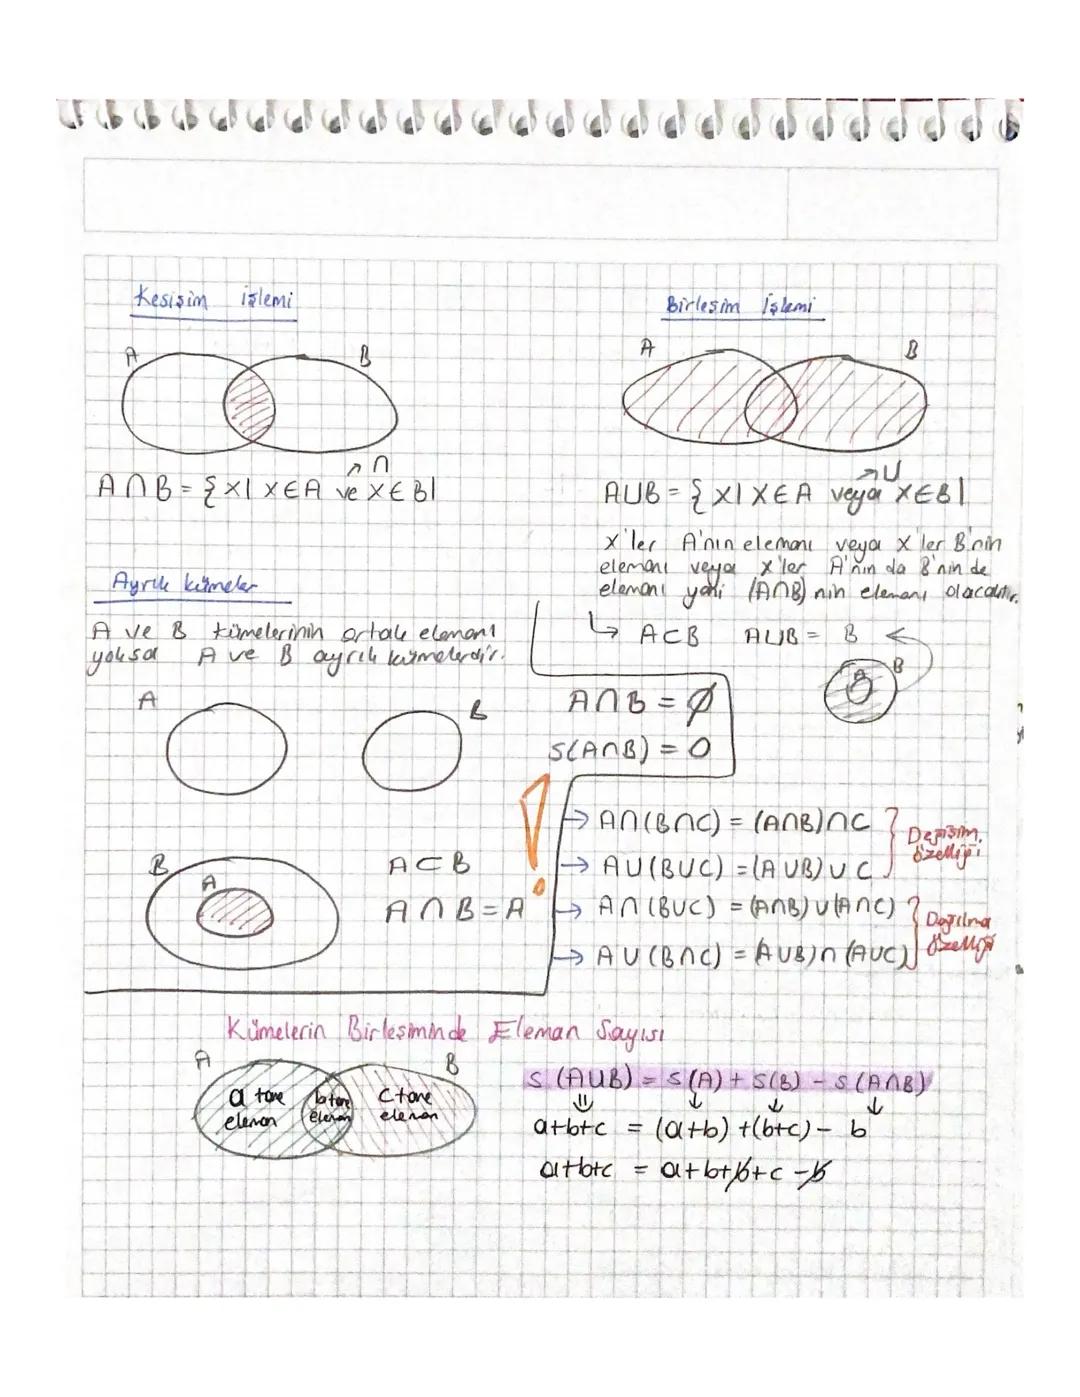 Kesişim işlemi
A B
∩
A∩B = { x| x∈A ve x∈B|
Birleşim İşlemi
A B
U
AUB = { x| x∈A veya x∈B|
x'ler A'nın elemanı veya x'ler B'nin
elemanı veya x'ler A'nın da B'nin de
elemanı yani (A∩B) nin elemanı olacaktır.
↳ A⊂B AUB = B
A B
Ayrık kümeler
A ve B kümelerinin ortak elemanı
yoksa A ve B ayrık kümelerdir.
A B
A∩B = ∅
S(A∩B) = 0
B A
A⊂B
A∩B = A
!
→ A∩(B∩C) = (A∩B)∩C
→ AU(BUC) = (AUB)UC
Değişim
özelliği
→ A∩(BUC) = (A∩B)U(A∩C)
→ AU(B∩C) = (AUB)∩(AUC)
Dağılma
özelliği
Kümelerin Birleşiminde Eleman Sayısı
A B
a tane
eleman
b tane
eleman
c tane
eleman
s(AUB) = s(A) + s(B) - s(A∩B)
a+b+c = (a+b) + (b+c) - b
a+b+c = a+b+b+c-b